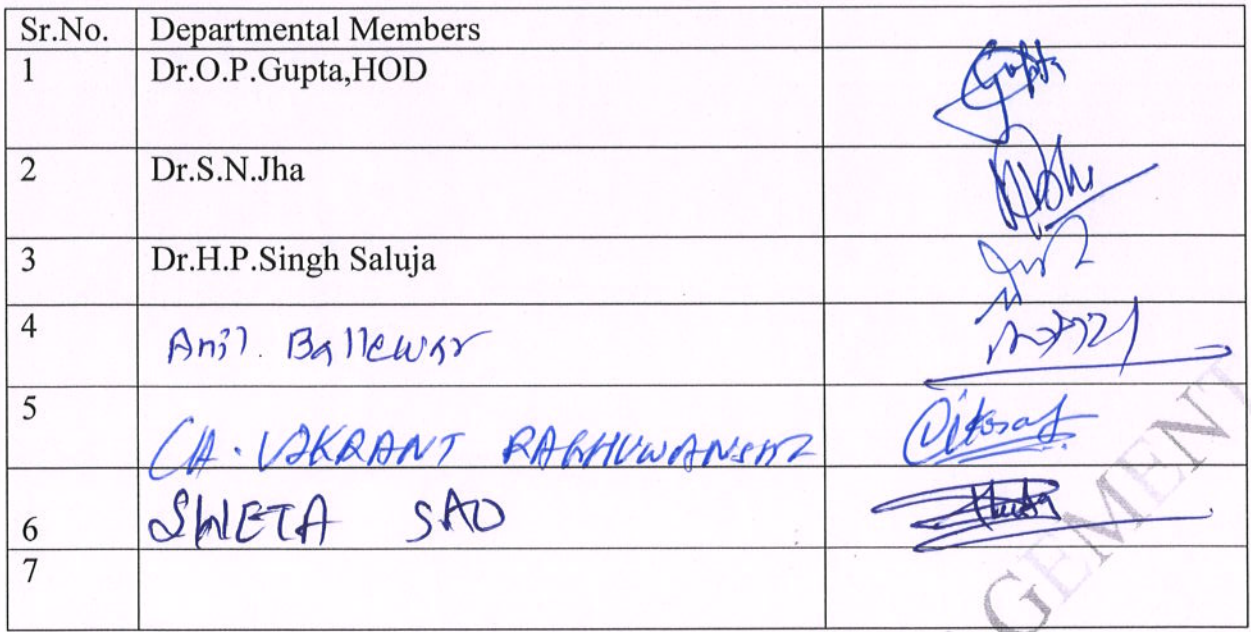 Sr.No. Departmental Members
1 Dr.O.P.Gupta,HOD Gupta
2 Dr.S.N.Jha
3 Dr.H.P.Singh Saluja
4 Anil. Ballewar
5 CA. VIKRANT RAGHUWANSHI
6 SWETA SAO
7
GEMENT